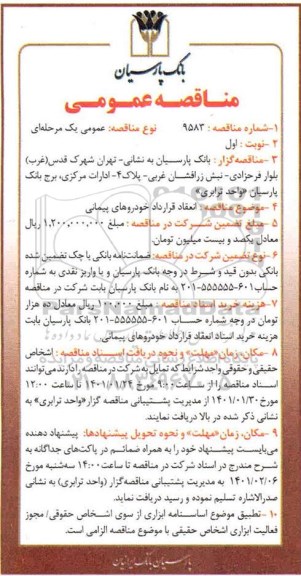 بانک پارسیان
مناقصه عمومی
۱-شماره مناقصه : ۹۵۸۳ نوع مناقصه: عمومی یک مرحله‌ای
۲-نوبت : اول
۳-مناقصه‌گزار : بانک پارسیان به نشانی- تهران شهرک قدس(غرب)
بلوار فرحزادی- نبش زرافشان غربی- پلاک۴- ادارات مرکزی، برج بانک
پارسیان «واحد ترابری»
۴-موضوع مناقصه : انعقاد قرارداد خودروهای پیمانی
۵- مبلغ تضمین شرکت در مناقصه : مبلغ ۱,۲۰۰,۰۰۰,۰۰۰ ریال
معادل یکصد و بیست میلیون تومان
۶-نوع تضمین شرکت در مناقصه: ضمانت‌نامه بانکی یا چک تضمین شده
بانکی بدون قید و شرط در وجه بانک پارسیان و یا واریز نقدی به شماره
حساب ۶۰۱-۵۵۵۵۵۵-۲۰۱ به نام بانک پارسیان بابت شرکت در مناقصه
۷- هزینه خرید اسناد مناقصه : مبلغ ۱۰۰,۰۰۰ ریال معادل ده هزار
تومان در وجه شماره حساب ۶۰۱-۵۵۵۵۵۵-۲۰۱ بانک پارسیان بابت
هزینه خرید اسناد انعقاد قرارداد خودروهای پیمانی.
۸- مکان، زمان«مهلت» و نحوه دریافت اسناد مناقصه : اشخاص
حقیقی و حقوقی واجد شرایط که تمایل به شرکت در مناقصه را دارند می‌توانند
اسناد مناقصه را از ساعت ۹:۰۰ مورخ ۱۴۰۱/۰۱/۲۴ تا ساعت ۱۲:۰۰
مورخ ۱۴۰۱/۰۱/۳۰ از مدیریت پشتیبانی مناقصه گزار«واحد ترابری» به
نشانی ذکر شده در بالا دریافت نمایند.
۹-مکان، زمان«مهلت» و نحوه تحویل پیشنهادها: پیشنهاد دهنده
می‌بایست پیشنهاد خود را به همراه ضمائم در پاکت‌های جداگانه به
شرح مندرج در اسناد شرکت در مناقصه تا ساعت ۱۴:۰۰ سه‌شنبه مورخ
۱۴۰۱/۰۲/۰۶ به مدیریت پشتیبانی مناقصه‌گزار (واحد ترابری) به نشانی
صدرالاشاره تسلیم نموده و رسید دریافت نماید.
۱۰- تطبیق موضوع اساسنامه ابزاری از سوی اشخاص حقوقی/ مجوز
فعالیت ابزاری اشخاص حقیقی با موضوع مناقصه الزامی است.
پارسیان بانک ایرانیان